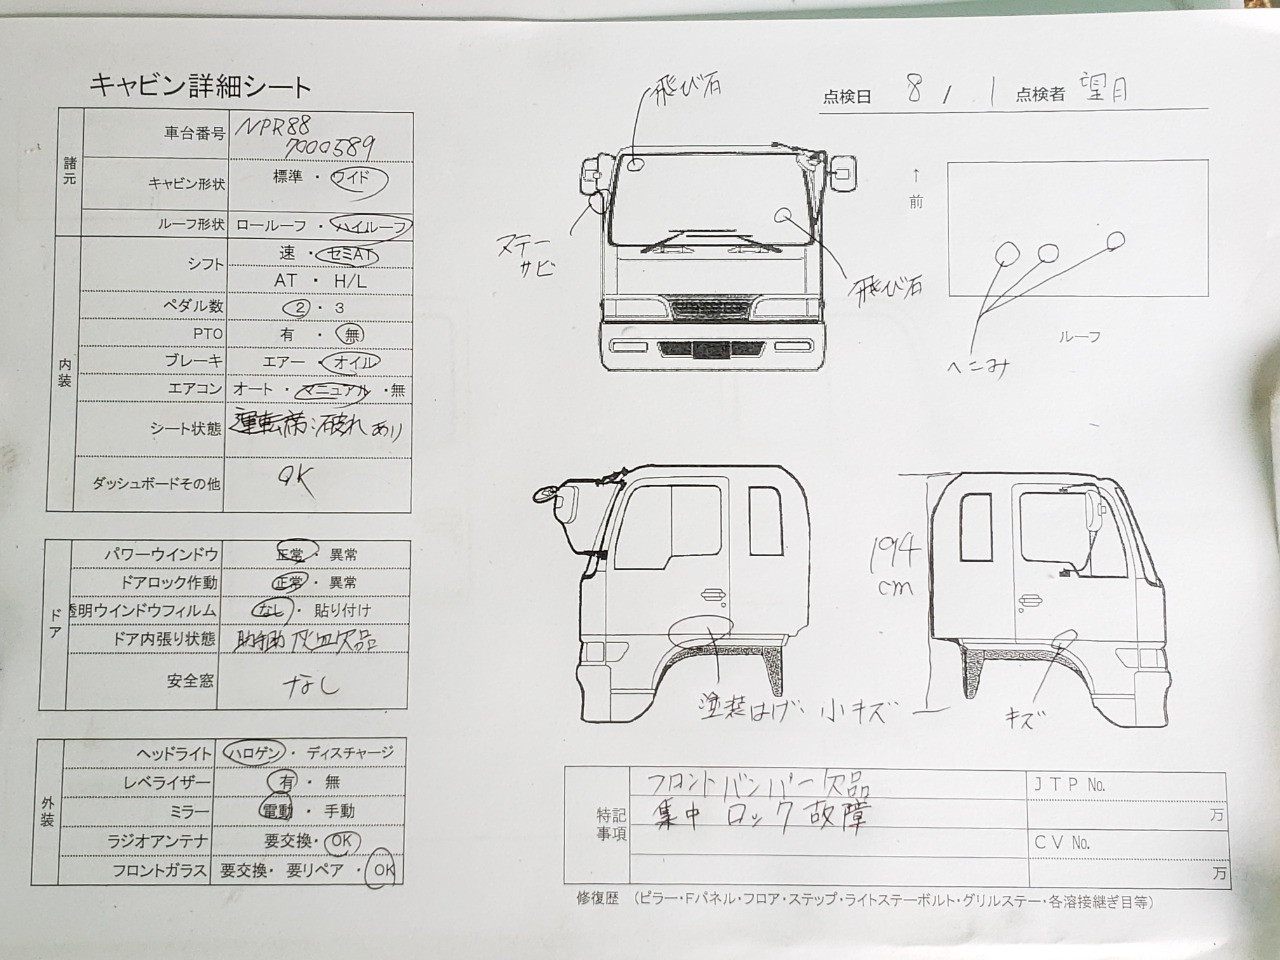 キャビン詳細シート
点検日 8 / 1 点検者 望月
諸元
車台番号 NPR88
7000589
キャビン形状 標準 ・ ワイド
ルーフ形状 ロールーフ ・ ハイルーフ
内装
シフト 速 ・ セミAT
AT ・ H/L
ペダル数 2 ・ 3
PTO 有 ・ 無
ブレーキ エアー ・ オイル
エアコン オート ・ マニュアル ・ 無
シート状態 運転席:破れあり
ダッシュボードその他 OK
ドア
パワーウインドウ 正常 ・ 異常
ドアロック作動 正常 ・ 異常
透明ウインドウフィルム なし ・ 貼り付け
ドア内張り状態 助手側 灰皿欠品
安全窓 なし
外装
ヘッドライト ハロゲン ・ ディスチャージ
レベライザー 有 ・ 無
ミラー 電動 ・ 手動
ラジオアンテナ 要交換 ・ OK
フロントガラス 要交換 ・ 要リペア ・ OK
飛び石
ステー
サビ
飛び石
↑
前
ルーフ
へこみ
194
cm
塗装はげ、小キズ
キズ
特記
事項
フロントバンパー欠品
集中ロック故障
JTP No.
万
CV No.
万
修復歴 (ピラー・Fパネル・フロア・ステップ・ライトステーボルト・グリルステー・各溶接継ぎ目等)